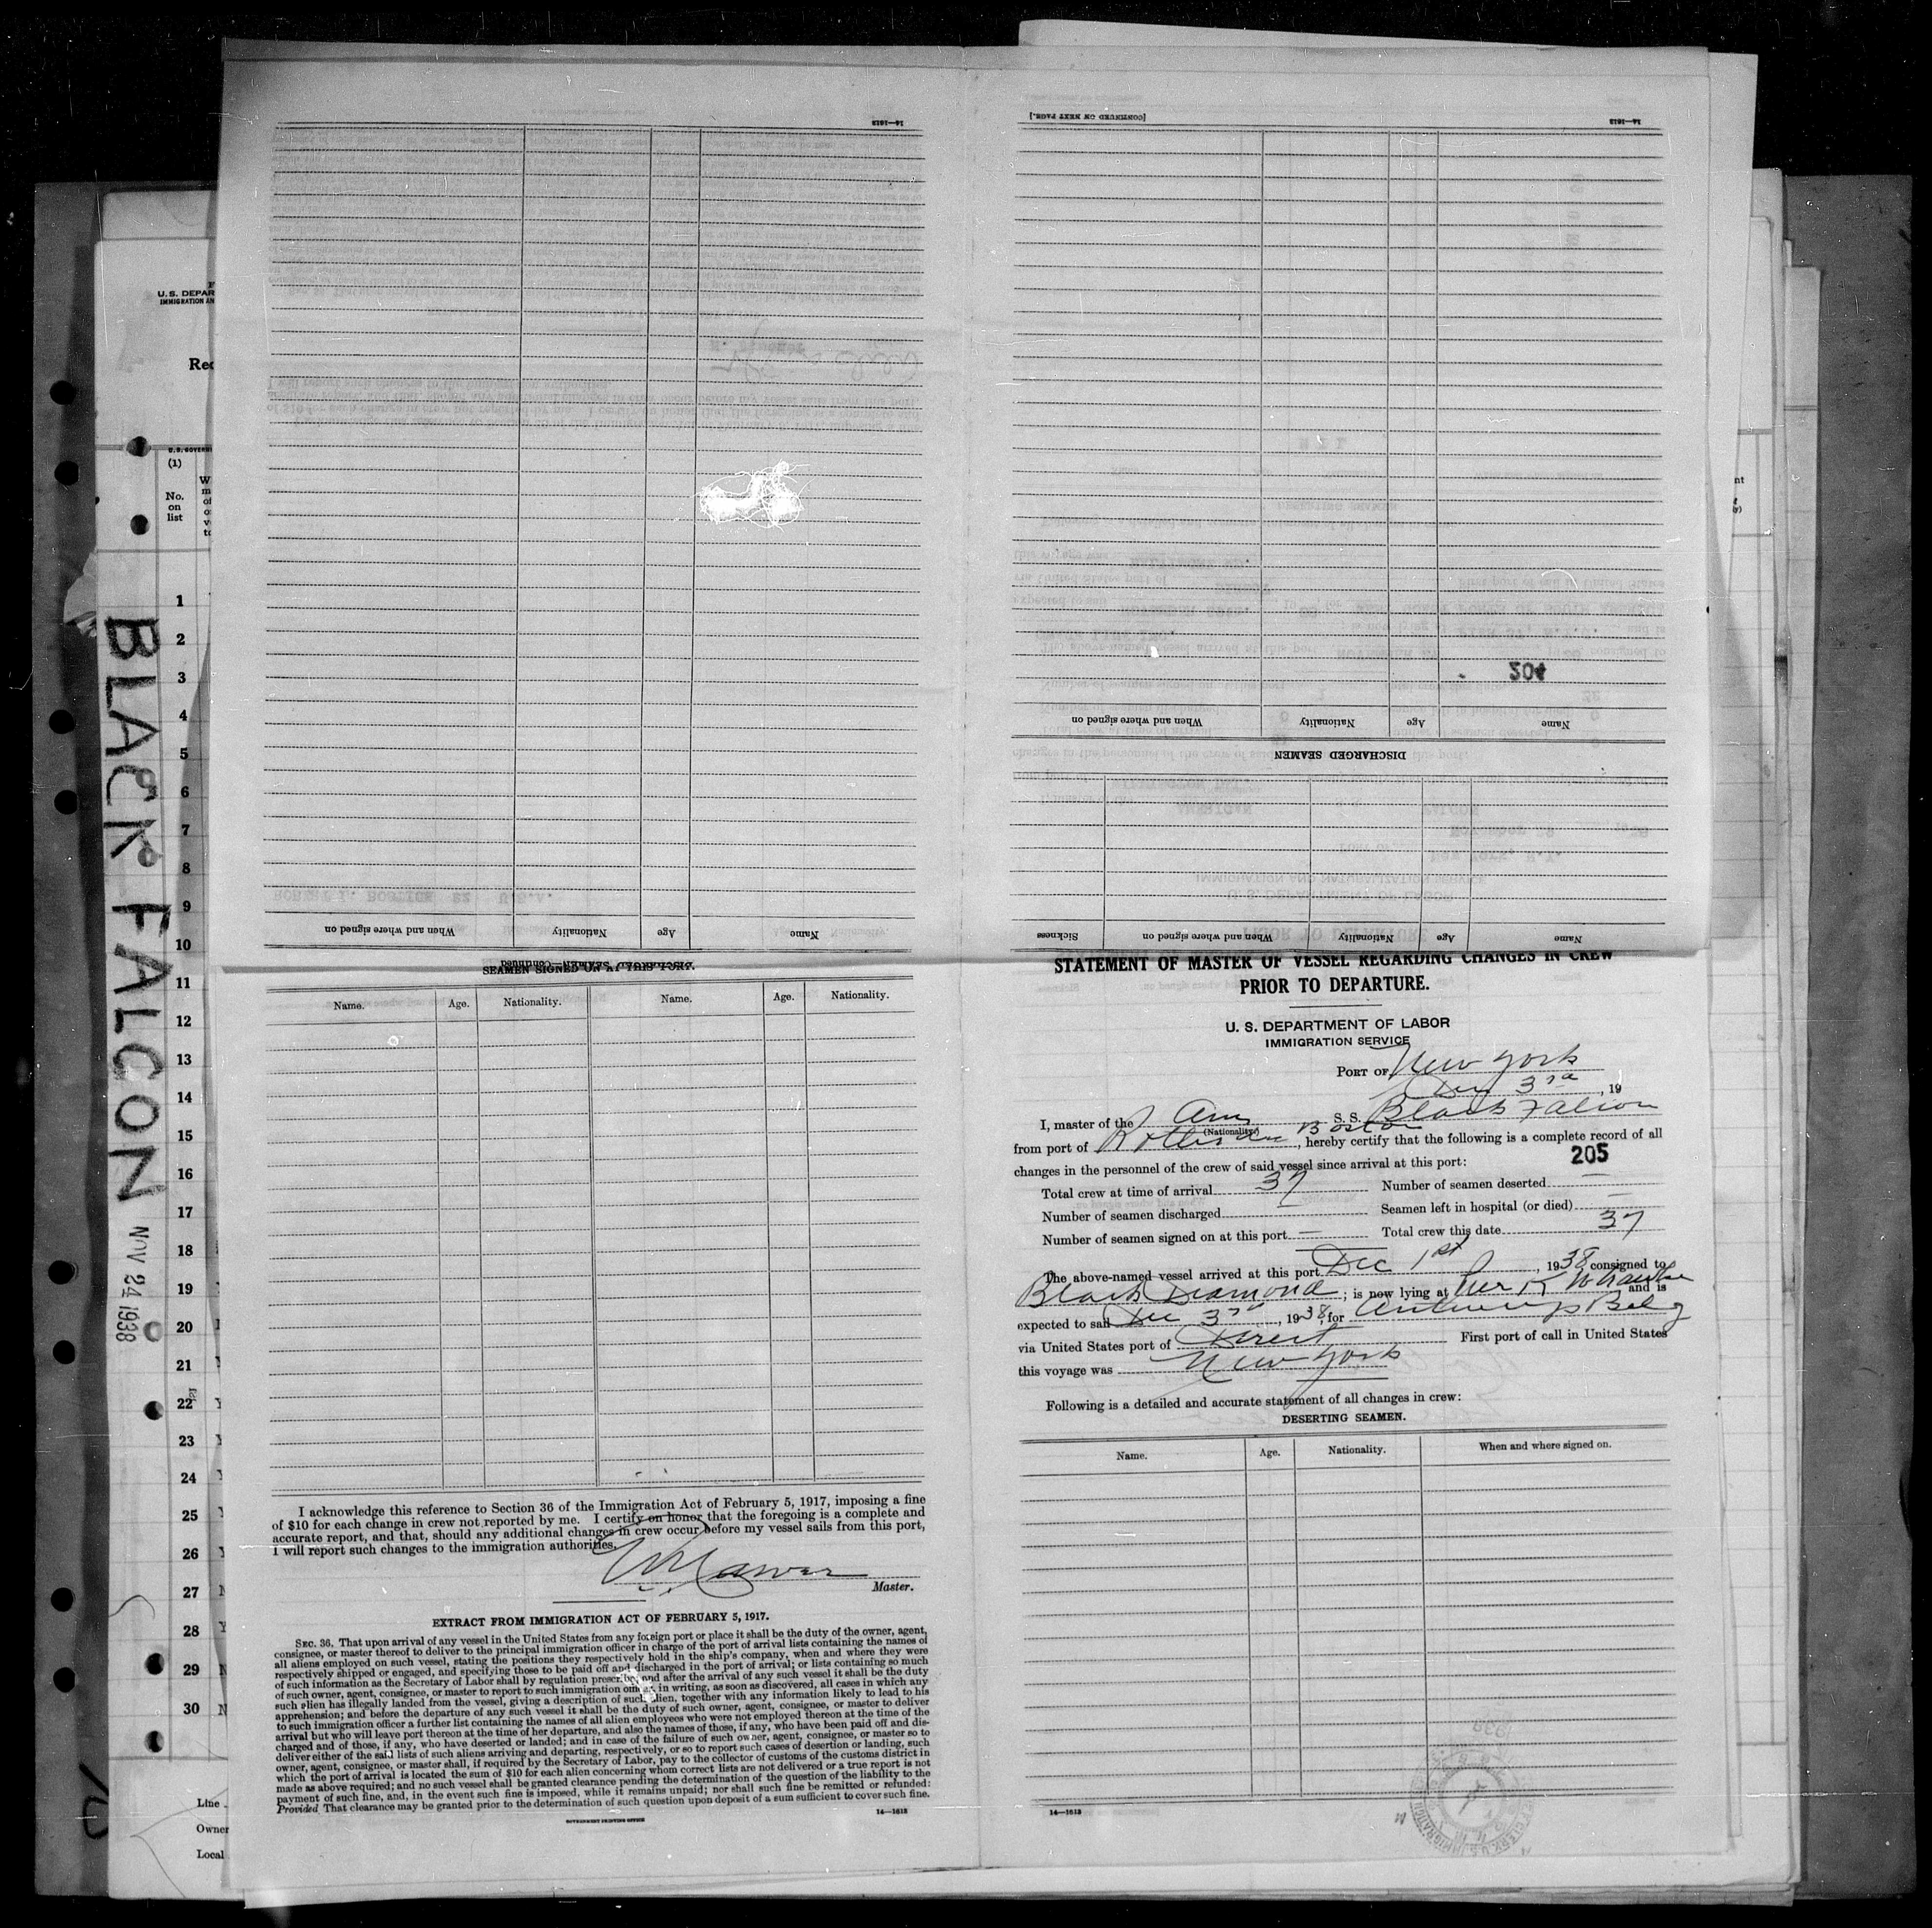 U.S. DEPAR
IMMIGRATION AN
Rec
U.S. GOVERN
(1)
No.
on
list
1
2
3
4
5
6
7
8
9
10
11
12
13
14
15
16
17
18
19
20
21
22
23
24
25
26
27
28
29
30
Line
Owner
Local
BLACK FALCON
NOV 24 1938
14—1613
When and where signed on Nationality Age Name
DISCHARGED SEAMEN—Continued
[CONTINUED ON NEXT PAGE.]
14—1613
204
When and where signed on Nationality Age Name
DISCHARGED SEAMEN
Sickness When and where signed on Nationality Age Name
SEAMEN SIGNED ON AT THIS PORT.
Name. Age. Nationality. Name. Age. Nationality.
I acknowledge this reference to Section 36 of the Immigration Act of February 5, 1917, imposing a fine
of $10 for each change in crew not reported by me. I certify on honor that the foregoing is a complete and
accurate report, and that, should any additional changes in crew occur before my vessel sails from this port,
I will report such changes to the immigration authorities.
Master.
EXTRACT FROM IMMIGRATION ACT OF FEBRUARY 5, 1917.
SEC. 36. That upon arrival of any vessel in the United States from any foreign port or place it shall be the duty of the owner, agent,
consignee, or master thereof to deliver to the principal immigration officer in charge of the port of arrival lists containing the names of
all aliens employed on such vessel, stating the positions they respectively hold in the ship's company, when and where they were
respectively shipped or engaged, and specifying those to be paid off and discharged in the port of arrival; or lists containing so much
of such information as the Secretary of Labor shall by regulation prescribe; and after the arrival of any such vessel it shall be the duty
of such owner, agent, consignee, or master to report to such immigration officer, in writing, as soon as discovered, all cases in which any
such alien has illegally landed from the vessel, giving a description of such alien, together with any information likely to lead to his
apprehension; and before the departure of any such vessel it shall be the duty of such owner, agent, consignee, or master to deliver
to such immigration officer a further list containing the names of all alien employees who were not employed thereon at the time of the
arrival but who will leave port thereon at the time of her departure, and also the names of those, if any, who have been paid off and dis-
charged and of those, if any, who have deserted or landed; and in case of the failure of such owner, agent, consignee, or master so to
deliver either of the said lists of such aliens arriving and departing, respectively, or so to report such cases of desertion or landing, such
owner, agent, consignee, or master shall, if required by the Secretary of Labor, pay to the collector of customs of the customs district in
which the port of arrival is located the sum of $10 for each alien concerning whom correct lists are not delivered or a true report is not
made as above required; and no such vessel shall be granted clearance pending the determination of the question of the liability to the
payment of such fine, and, in the event such fine is imposed, while it remains unpaid; nor shall such fine be remitted or refunded:
Provided, That clearance may be granted prior to the determination of such question upon deposit of a sum sufficient to cover such fine.
GOVERNMENT PRINTING OFFICE 14—1613
STATEMENT OF MASTER OF VESSEL REGARDING CHANGES IN CREW
PRIOR TO DEPARTURE.
U. S. DEPARTMENT OF LABOR
IMMIGRATION SERVICE
PORT OF New York
Dec 3rd, 19
I, master of the Am S. S. Black Falcon
(Nationality)
from port of Rotterdam Boston, hereby certify that the following is a complete record of all
changes in the personnel of the crew of said vessel since arrival at this port: 205
Total crew at time of arrival 37 Number of seamen deserted —
Number of seamen discharged — Seamen left in hospital (or died) —
Number of seamen signed on at this port — Total crew this date 37
The above-named vessel arrived at this port Dec 1st, 1938 consigned to
Black Diamond; is now lying at Pier K Whawken and is
expected to sail Dec 3rd, 1938, for Antwerp Belg
via United States port of Direct First port of call in United States
this voyage was New York
Following is a detailed and accurate statement of all changes in crew:
DESERTING SEAMEN.
Name. Age. Nationality. When and where signed on.
14—1613